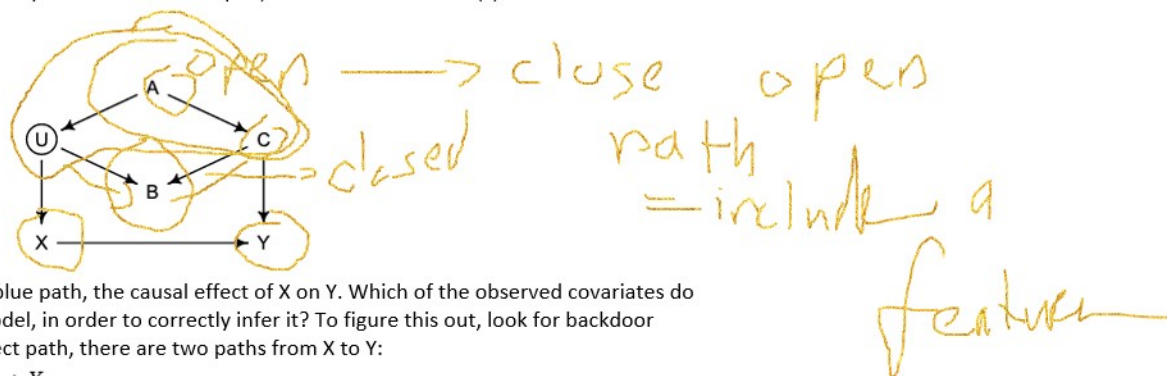 A open → close open
U C path
B → closed = include a
X Y feature
blue path, the causal effect of X on Y. Which of the observed covariates do
odel, in order to correctly infer it? To figure this out, look for backdoor
ect path, there are two paths from X to Y: